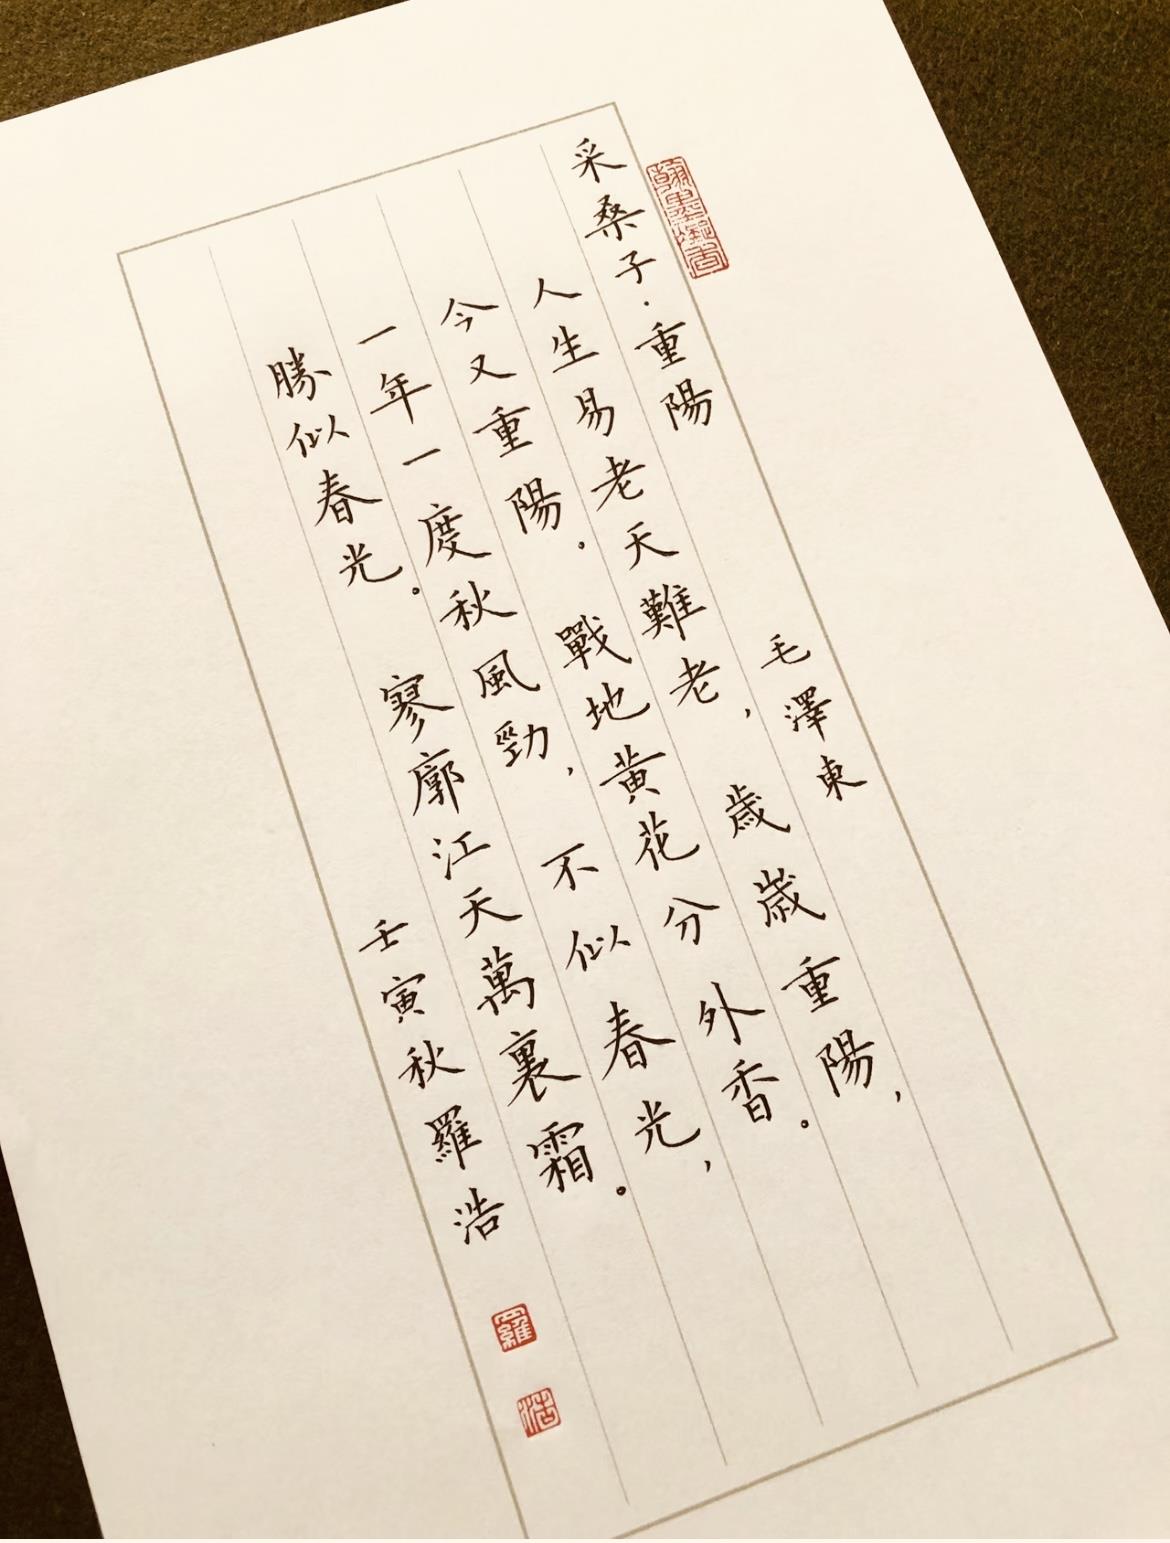 采桑子·重陽 毛澤東
人生易老天難老，歳歳重陽，
今又重陽。戰地黄花分外香。
一年一度秋風勁，不似春光，
勝似春光。寥廓江天萬裏霜。
壬寅秋羅浩
羅
浩